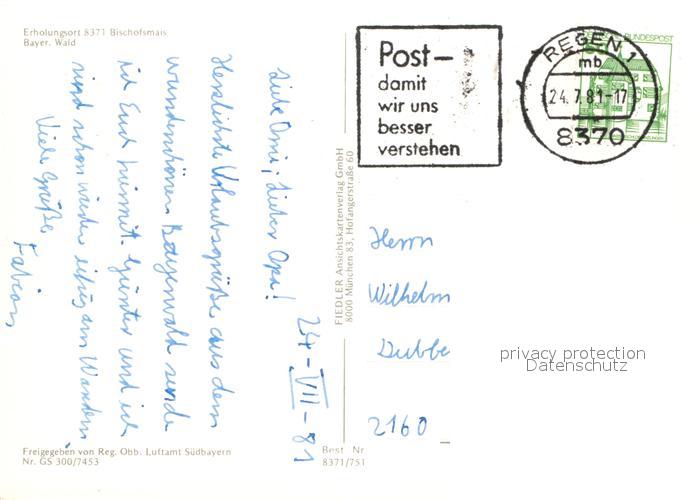 Erholungsort 8371 Bischofsmais
Bayer. Wald
24-VII-81
Liebe Omi, Lieber Opa!
Herzlichste Urlaubsgrüße aus dem
wunderschönen Bayerwald sende
ich Euch hiermit. Günter und ich
sind schon wieder eifrig am Wandern.
Viele Grüße
Fabian
Freigegeben von Reg. Obb. Luftamt Südbayern
Nr. GS 300/7453
Best. Nr
8371/751
FIEDLER Ansichtskartenverlag GmbH
8000 München 83, Hofangerstraße 60
Post-
damit
wir uns
besser
verstehen
REGEN 1
mb
24.7.81-17
8370
BUNDESPOST
Herrn
Wilhelm
Dubbe
2160
privacy protection
Datenschutz